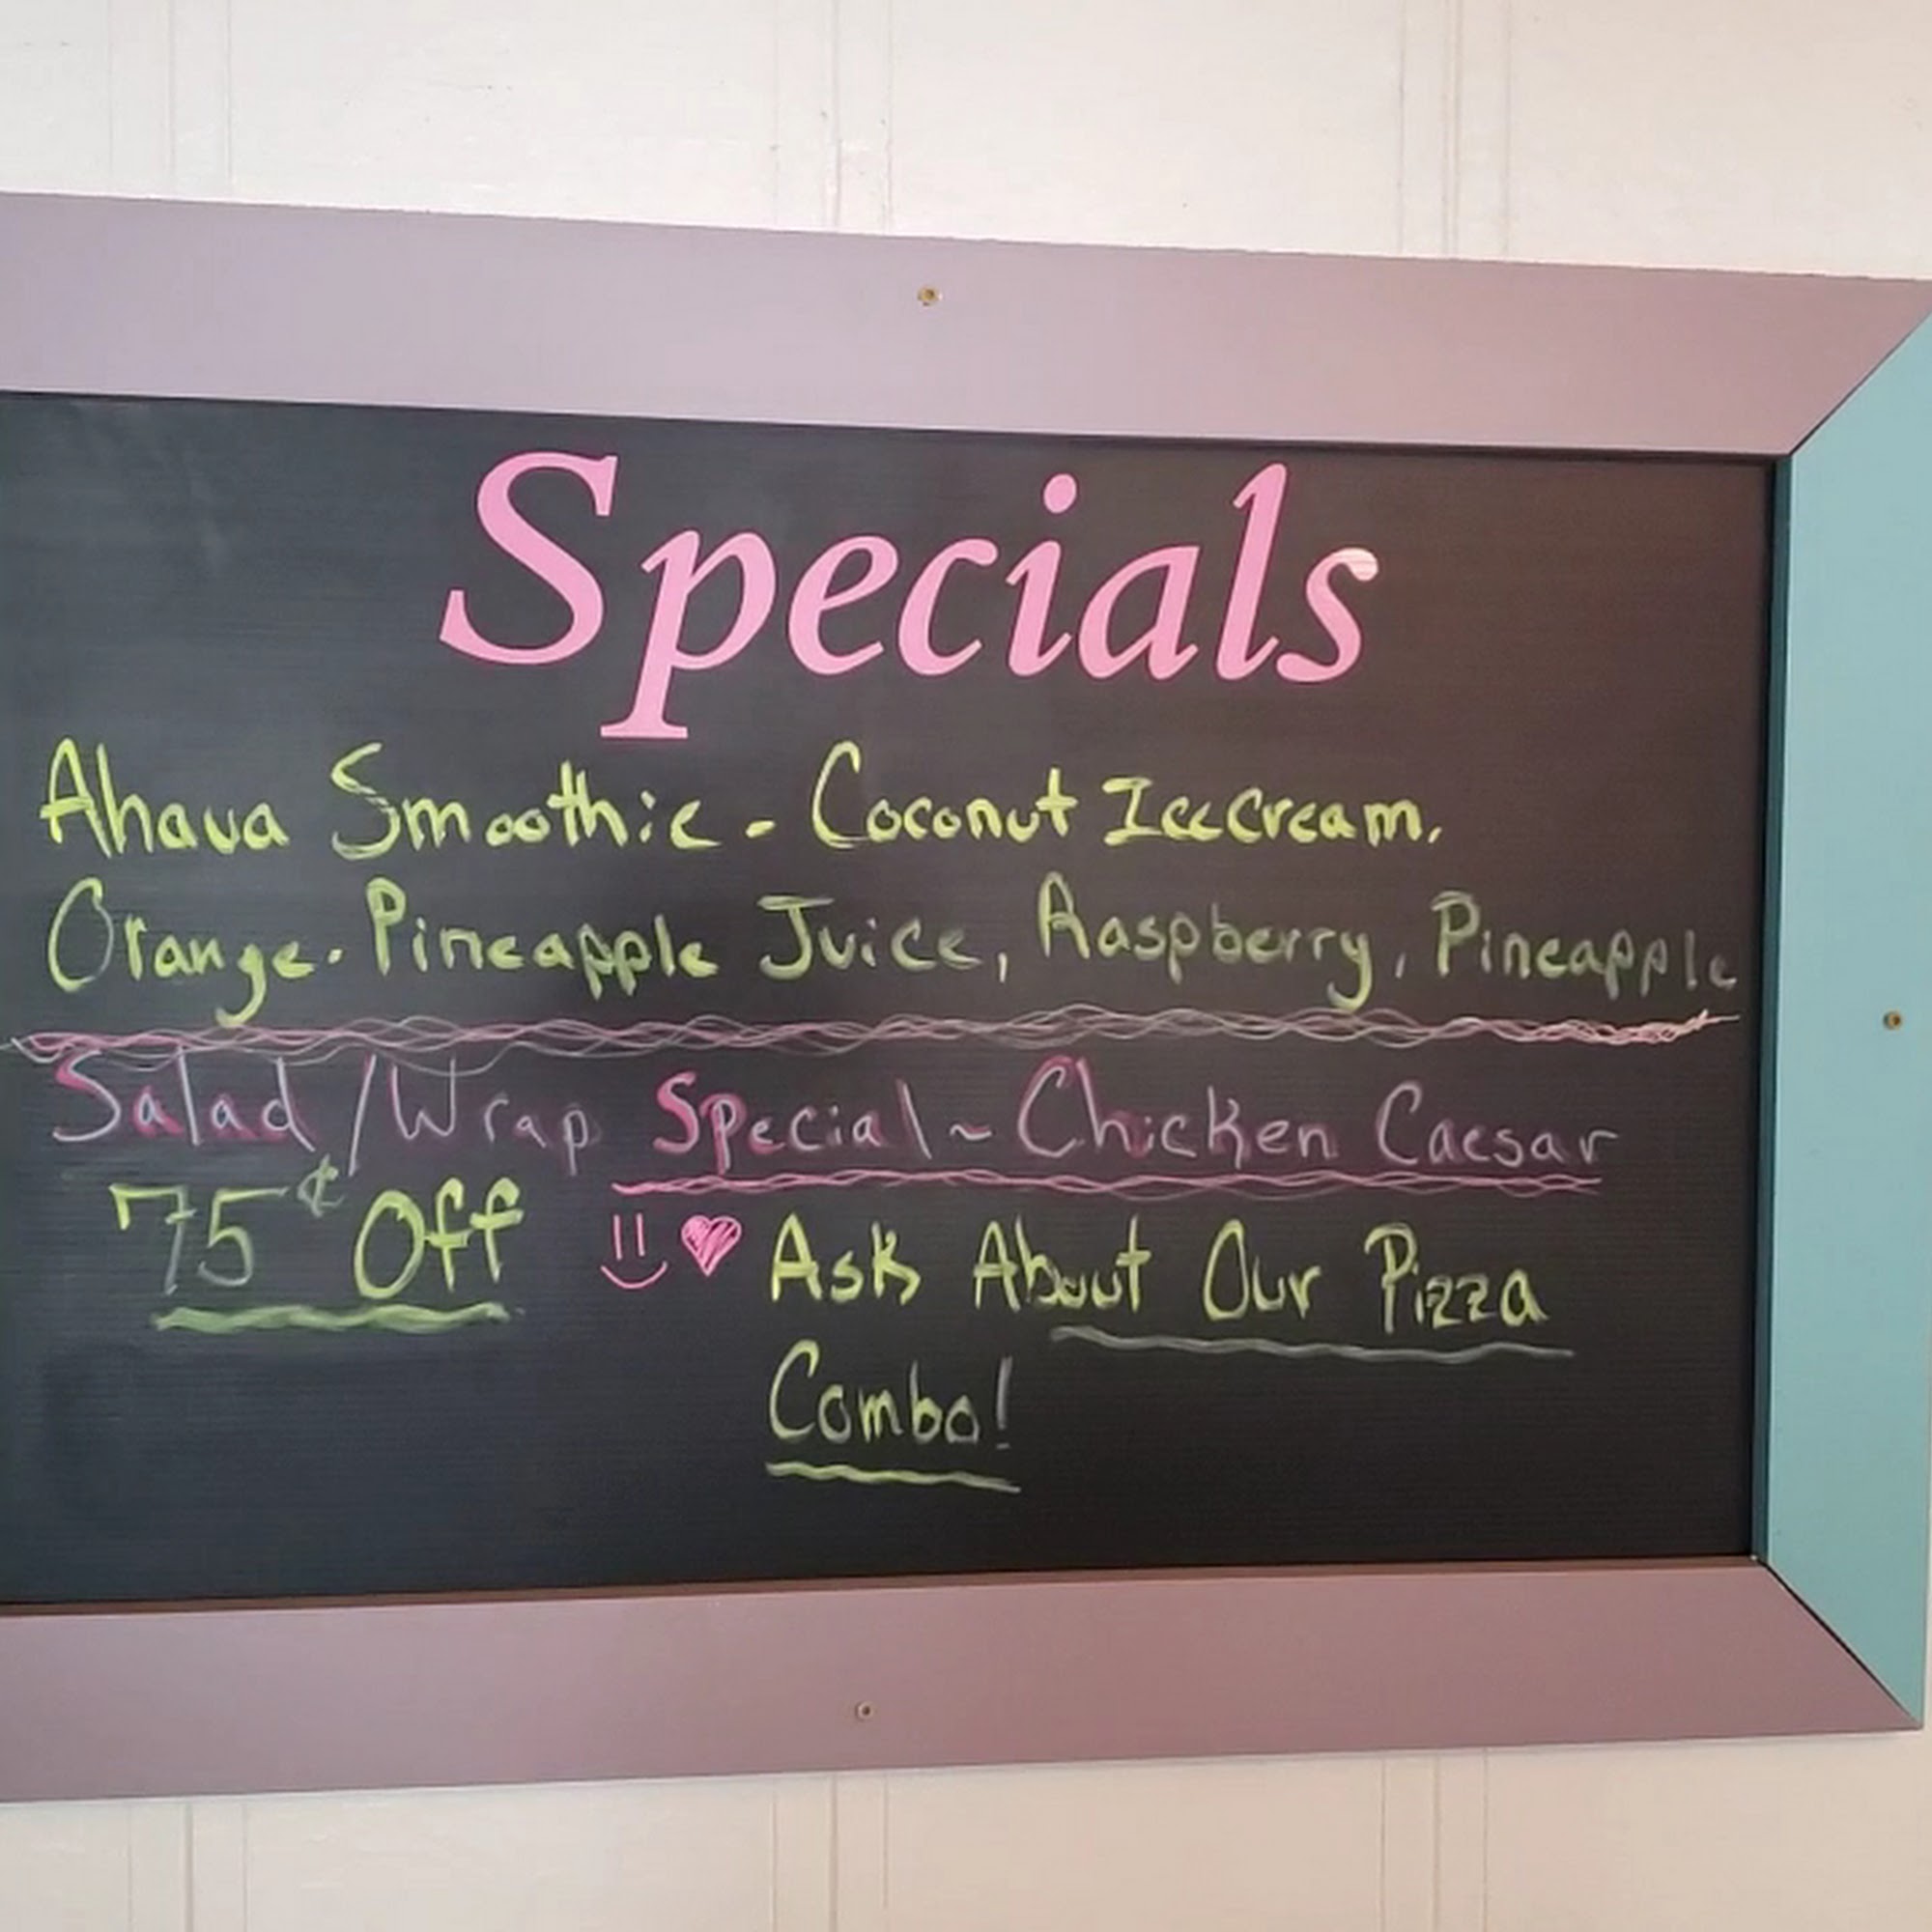 Specials
Ahava Smoothie - Coconut IceCream,
Orange-Pineapple Juice, Raspberry, Pineapple
Salad/Wrap Special ~ Chicken Caesar
75¢ Off
Ask About Our Pizza
Combo!